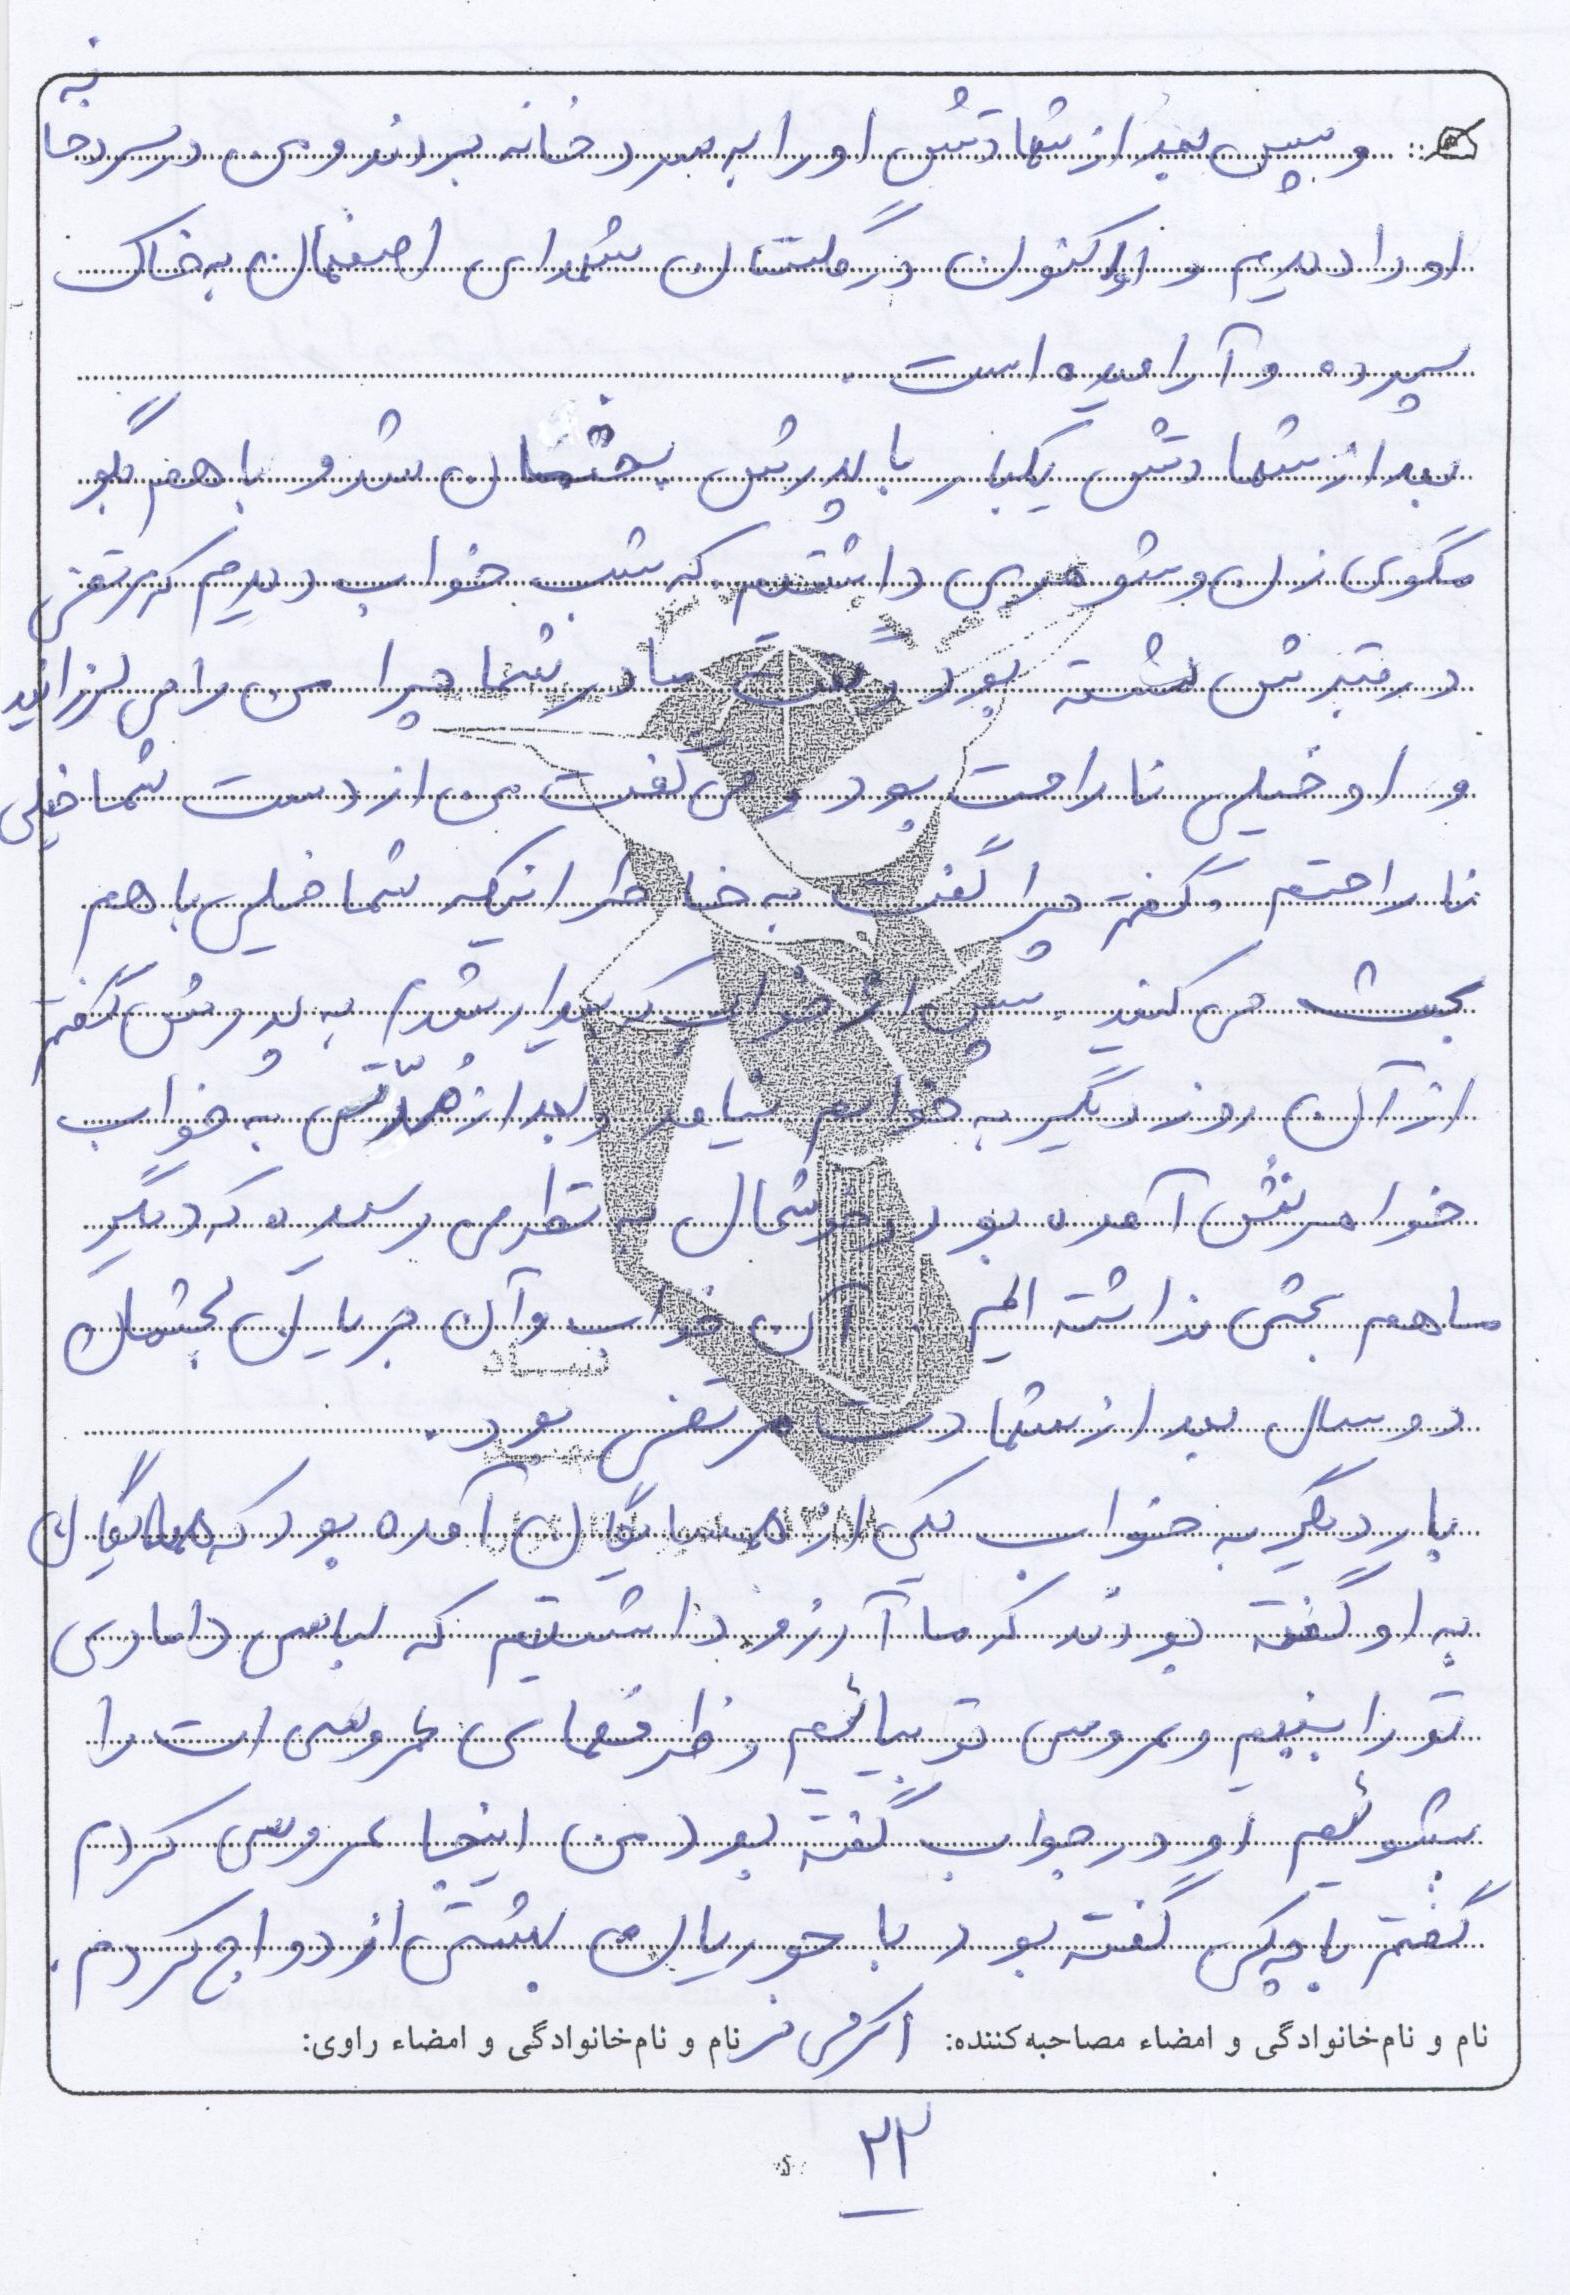 و سپس بعد از شهادتش او را به سردخانه بردند و من در سردخانه
او را دیدم و او اکنون در گلستان شهدای اصفهان به خاک
سپرده و آرامیده است.
بعد از شهادتش یکبار با پدرش بحثمان شد و با هم بگو
مگوی زن و شوهری داشتیم که شب خواب دیدم که مرتضی
در قبرش نشسته بود و گفت مادر شما چرا من را می لرزانید
و او خیلی ناراحت بود و می گفت من از دست شما خیلی
ناراحتم و گفتم چرا گفت به خاطر اینکه شما خیلی با هم
بحث می کنید. پس از خواب که بیدار شدم به پدرش گفتم
از آن روز دیگر به خوابم نیامد و بعد از مدتی به خواب
خواهرش آمده بود و خوشحال به نظر می رسیده که دیگر
ما هم بحثی نداشته ایم. آن خواب و آن جریان بحثمان
دو سال بعد از شهادت مرتضی بود.
بار دیگر به خواب یکی از همسایگان آمده بود که همسایگان
به او گفته بودند که ما آرزو داشتیم که لباس دامادی
تو را ببینیم و عروسی تو بیائیم و ظرفهای عروسی ات را
بشوئیم او در جواب گفته بود من اینجا عروسی کردم
گفتم با چه کسی گفته بود با حوریان بهشتی ازدواج کردم.
نام و نام‌خانوادگی و امضاء مصاحبه‌کننده: اکرمی فر نام و نام‌خانوادگی و امضاء راوی:
۲۲